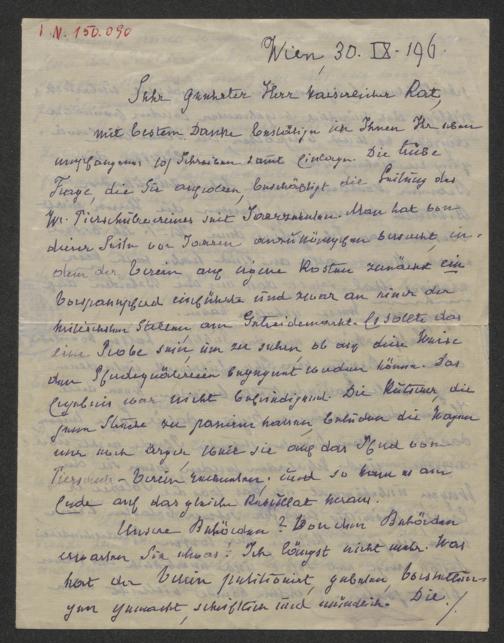 I. N. 150.090
Wien, 30. IX. 196.
Sehr geehrter Herr kaiserlicher Rat,
mit bestem Danke bestätige ich Ihnen Ihr eben
empfangenes Schreiben samt Einlagen. Die trübe
Frage, die Sie aufrollen, beschäftigt die Leitung des
Wr. Tierschutzvereines seit Jahrzehnten. Man hat von
dieser Seite vor Jahren versucht, in-
dem der Verein auf eigene Kosten zunächst ein
Vorspannpferd einführte und zwar an einer der
Stellen, am Getreidemarkt. Es sollte das
eine Probe sein, um zu sehen, ob auf diese Weise
den Pferdequälereien begegnet werden könne. Das
Ergebnis war nicht befriedigend. Die Kutscher, die
jene Strecke zu passieren hatten, beluden die Wagen
nur noch ärger, weil sie auf das Pferd vom
Tierschutz-Verein und so kam es am
Ende auf das gleiche Resultat heraus.
Unsere Behörden? Von den Behörden
erwarten Sie etwas? Ich längst nicht mehr. Was
hat der Verein petitioniert, gebeten, Vorstellun-
gen gemacht, schriftlich und mündlich. Die ./.